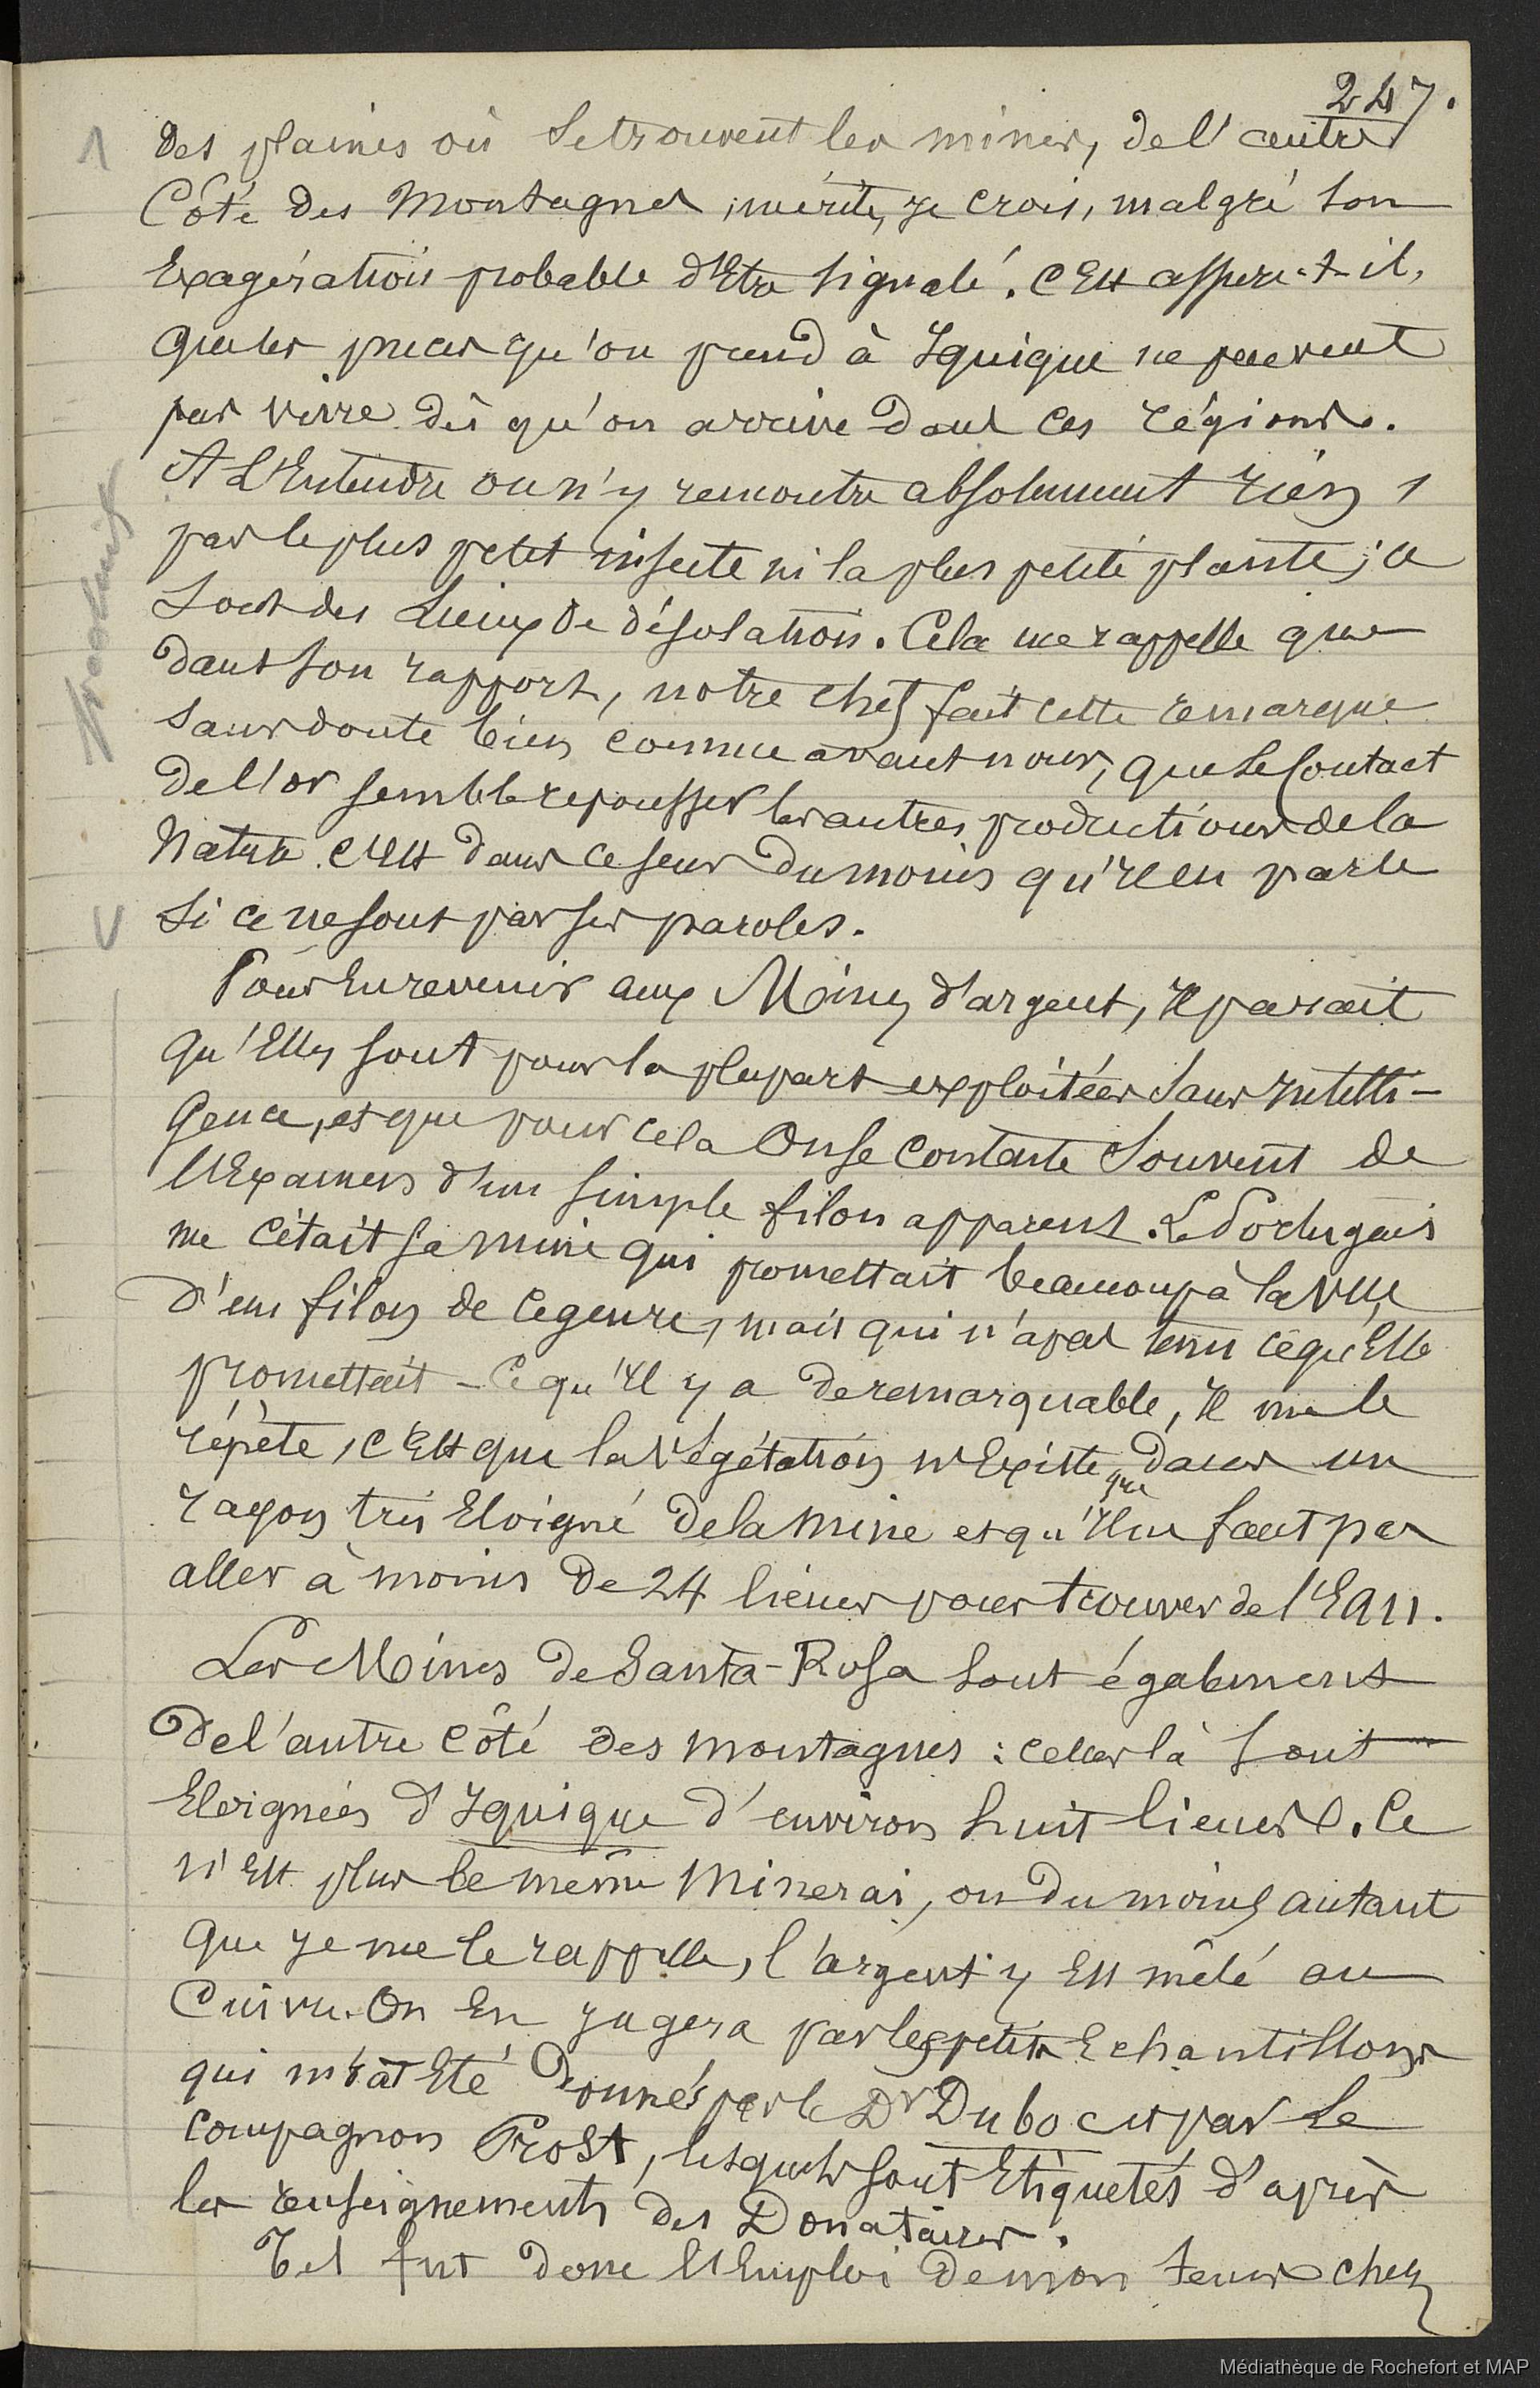 247.
des plaines où se trouvent les mines, de l'autre
Côté des Montagnes, mérite, je crois, malgré son
Exagération probable d'Etre signalé. C'Est assure-t-il,
que les puces qu'on prend à Iquique ne peuvent
pas vivre dès qu'on arrive dans ces régions.
A L'Entendre on n'y rencontre absolument rien,
pas le plus petit insecte ni la plus petite plante; ce
sont des Lieux de désolation. Cela me rappelle que
dans son rapport, notre chef fait cette remarque
sans doute bien connue avant nous, que le Contact
de l'or semble repousser les autres productions de la
Nature. C'Est dans ce sens du moins qu'Il en parle
si ce ne sont pas ses paroles.
Pour En revenir aux Mines d'argent, Il parait
qu'Elles sont pour la plupart exploitées sans Intelli-
gence, et que pour cela On se contente souvent de
l'Examen d'un simple filon apparent. Le Portugais
me citait sa mine qui promettait beaucoup à la vue
d'un filon de ce genre, mais qui n'a pas tenu ce qu'Elle
promettait - Ce qu'Il y a de remarquable, Il me le
répète, c'Est que la Végétation n'Existe que dans un
rayon très Eloigné de la Mine et qu'Il ne faut pas
aller à moins de 24 lieues pour trouver de l'Eau.
Les Mines de Santa-Rosa sont également
de l'autre côté des montagnes : celles là sont
Eloignées d'Iquique d'environ huit lieues. Ce
n'Est plus le même Minerai, ou du moins autant
que je me le rappelle, l'argent y Est mêlé au
Cuivre. On En jugera par les petits Echantillons
qui m'ont Eté donnés par le Dr Dubo et par le
compagnon Prost, lesquels sont Etiquetés d'après
les renseignements des Donataires.
Tel fut donc l'Emploi de mon tems chez